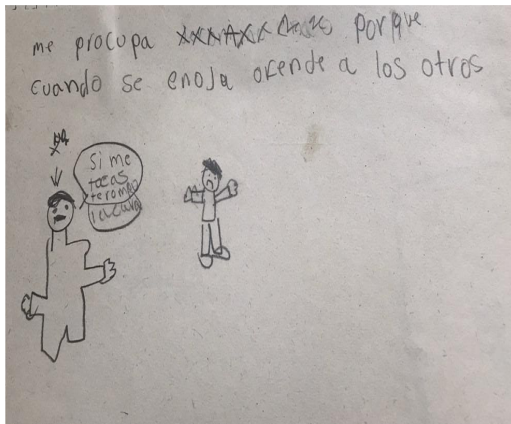 me procupa porque
cuando se enoja ofende a los otros
si me
tocas
te rompo
la cara